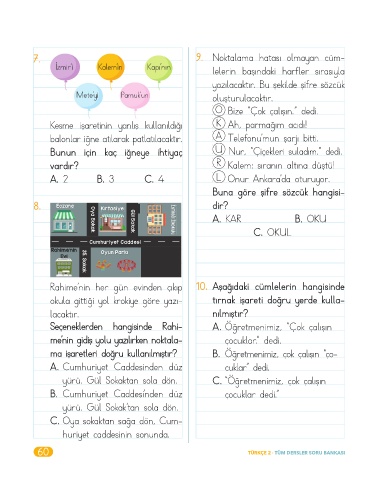 7.
İzmir'i
Kalem'in
Kapı'nın
Meteyi
Pamuk'un
Kesme işaretinin yanlış kullanıldığı
balonlar iğne atılarak patlatılacaktır.
Bunun için kaç iğneye ihtiyaç
vardır?
A. 2 B. 3 C. 4
8.
Eczane
Oya Sokak
Kırtasiye
Gül Sokak
Cumhuriyet Caddesi
Rahime'nin
Evi
Oyun Parkı
Rahime'nin her gün evinden çıkıp
okula gittiği yol krokiye göre yazı-
lacaktır.
Seçeneklerden hangisinde Rahi-
me'nin gidiş yolu yazılırken noktala-
ma işaretleri doğru kullanılmıştır?
A. Cumhuriyet Caddesinden düz
yürü. Gül Sokaktan sola dön.
B. Cumhuriyet Caddesi'nden düz
yürü. Gül Sokak'tan sola dön.
C. Oya sokaktan sağa dön, Cum-
huriyet caddesinin sonunda.
9. Noktalama hatası olmayan cüm-
lelerin başındaki harfler sırasıyla
yazılacaktır. Bu şekilde şifre sözcük
oluşturulacaktır.
O Bize "Çok çalışın." dedi.
K Ah, parmağım acıdı!
A Telefonu'mun şarjı bitti.
U Nur, "Çiçekleri suladım." dedi.
R Kalem: sıranın altına düştü!
L Onur Ankara'da oturuyor.
Buna göre şifre sözcük hangisi-
dir?
A. KAR B. OKU
C. OKUL
10. Aşağıdaki cümlelerin hangisinde
tırnak işareti doğru yerde kulla-
nılmıştır?
A. Öğretmenimiz, "Çok çalışın
çocuklar." dedi.
B. Öğretmenimiz, çok çalışın "ço-
cuklar" dedi.
C. "Öğretmenimiz, çok çalışın
çocuklar dedi."
60
TÜRKÇE 2 - TÜM DERSLER SORU BANKASI